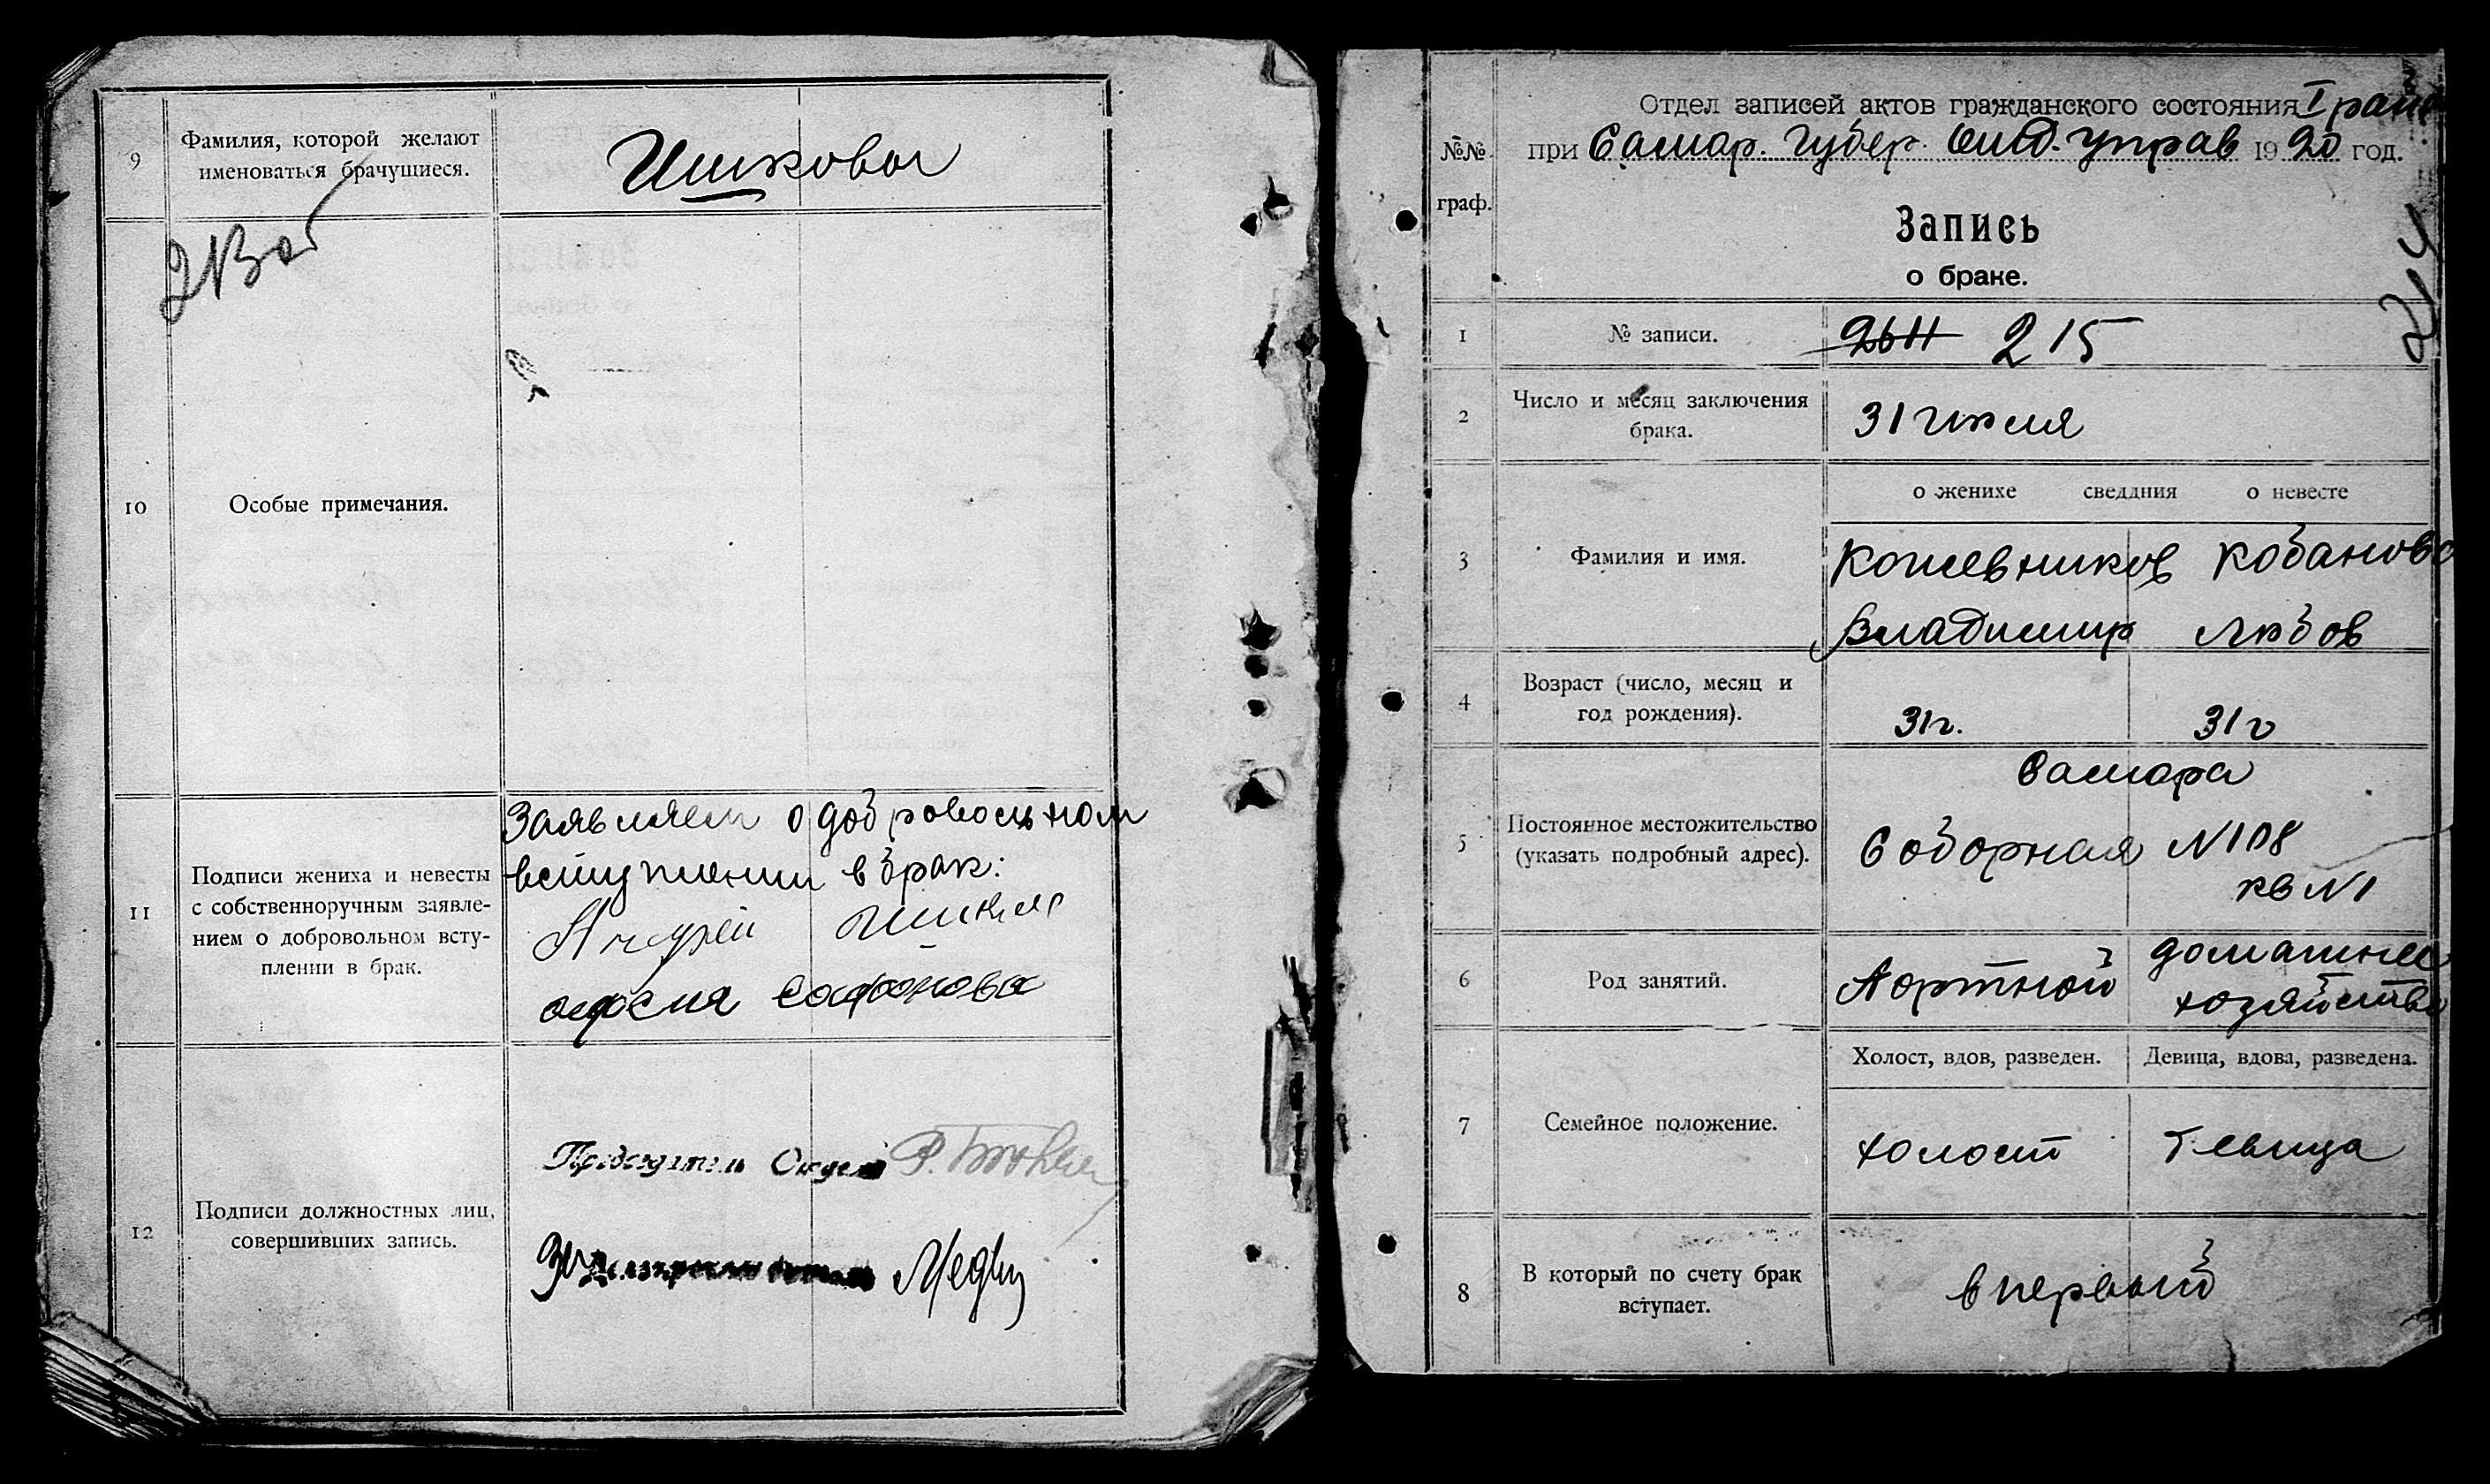 9
Фамилия, которой желают
именоваться брачущиеся.
Ишковы
10
Особые примечания.
11
Подписи жениха и невесты
с собственноручным заявле-
нием о добровольном всту-
плении в брак.
Заявляем о добровольном
вступлении в брак:
Андрей Ишков
Сафонова
12
Подписи должностных лиц,
совершивших запись.
Председатель Отдела
№№
граф.
Отдел записей актов гражданского состояния I райо
при Самар. Губер. управ 1920 год.
Запись
о браке.
214
1
№ записи.
215
2
Число и месяц заключения
брака.
31 июля
о женихе сведдния о невесте
3
Фамилия и имя.
Кожевников Кобанова
Владимир Любов
4
Возраст (число, месяц и
год рождения).
31г. 31г
5
Постоянное местожительство
(указать подробный адрес).
Самара
Соборная N108
кв N1
6
Род занятий.
Портной
домашнее
хозяйство
7
Семейное положение.
Холост, вдов, разведен. Девица, вдова, разведена.
холост девица
8
В который по счету брак
вступает.
в первый